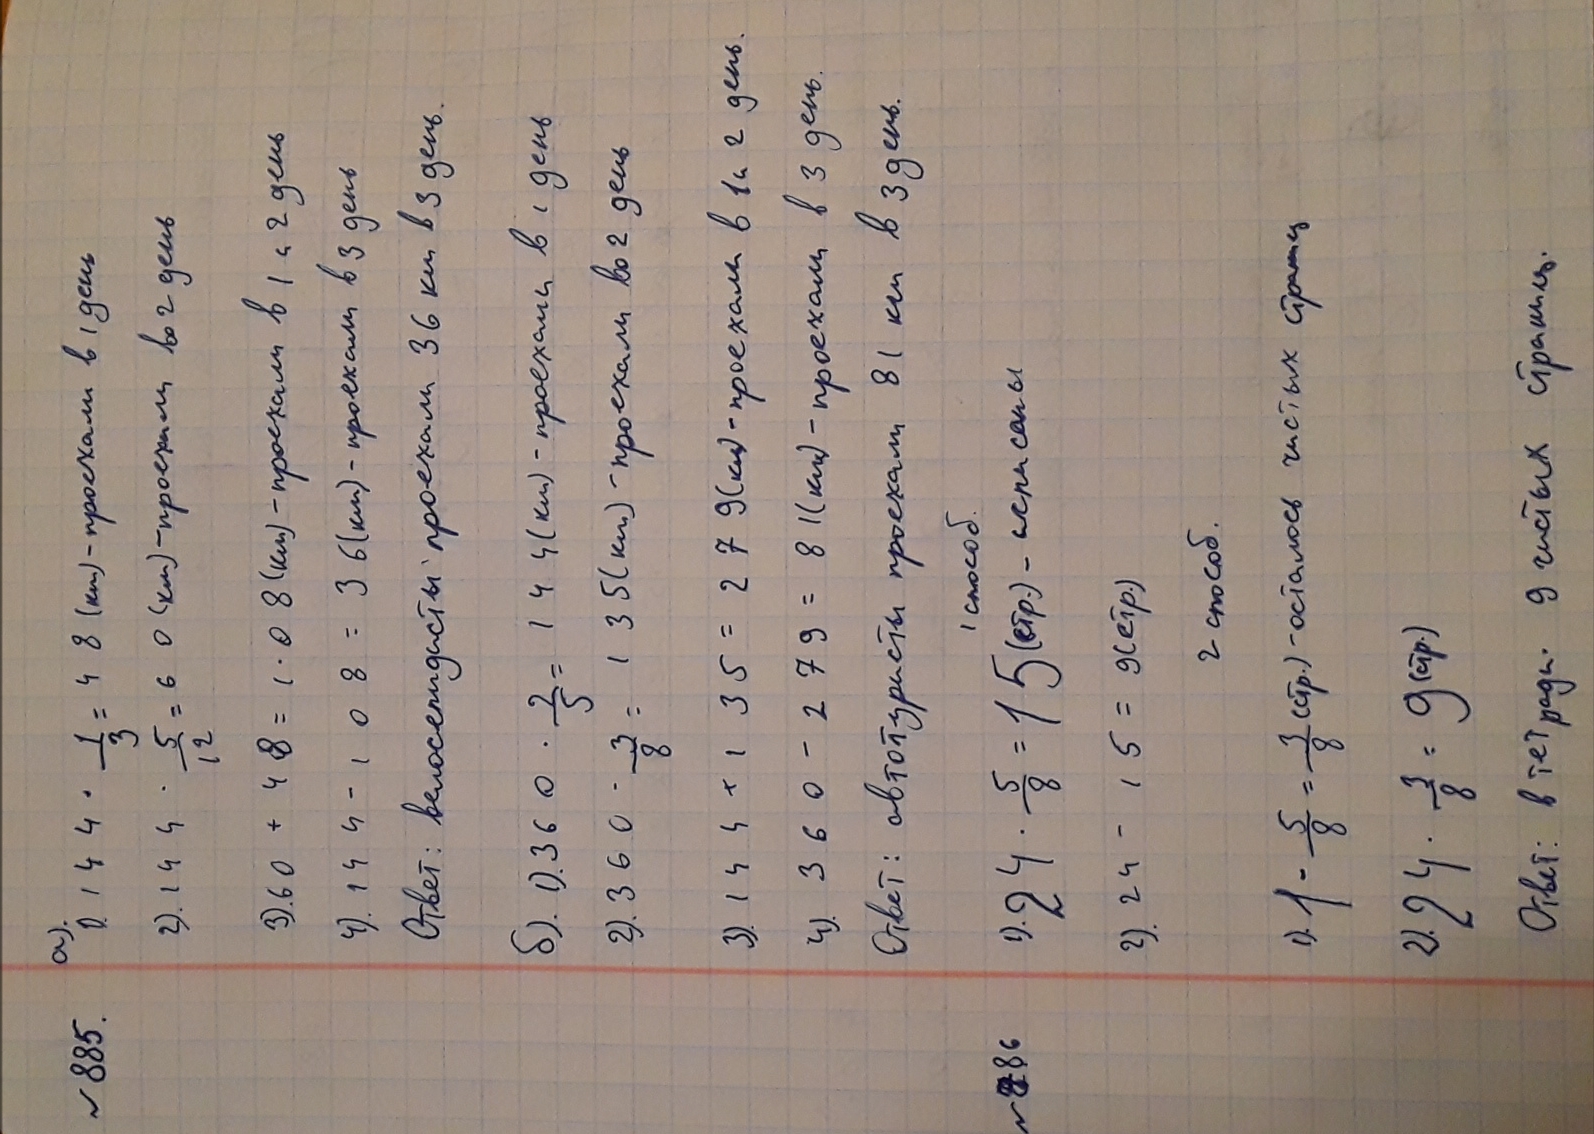 №885.
а).
1). 144 · 1/3 = 48 (км) - проехали в 1 день
2). 144 · 5/12 = 60 (км) - проехали во 2 день
3). 60 + 48 = 108 (км) - проехали в 1 и 2 день
4). 144 - 108 = 36 (км) - проехали в 3 день
Ответ: велосепидисты проехали 36 км в 3 день.
б). 1). 360 · 2/5 = 144 (км) - проехали в 1 день
2). 360 · 3/8 = 135 (км) - проехали во 2 день
3). 144 + 135 = 279 (км) - проехали в 1 и 2 день.
4). 360 - 279 = 81 (км) - проехали в 3 день.
Ответ: автотуристы проехали 81 км в 3 день.
1 способ.
№886
1). 24 · 5/8 = 15 (стр.) - исписаны
2). 24 - 15 = 9 (стр.)
2 способ.
1). 1 - 5/8 = 3/8 (стр.) - осталось чистых страниц
2). 24 · 3/8 = 9 (стр.)
Ответ: в тетради. 9 чистых страниц.